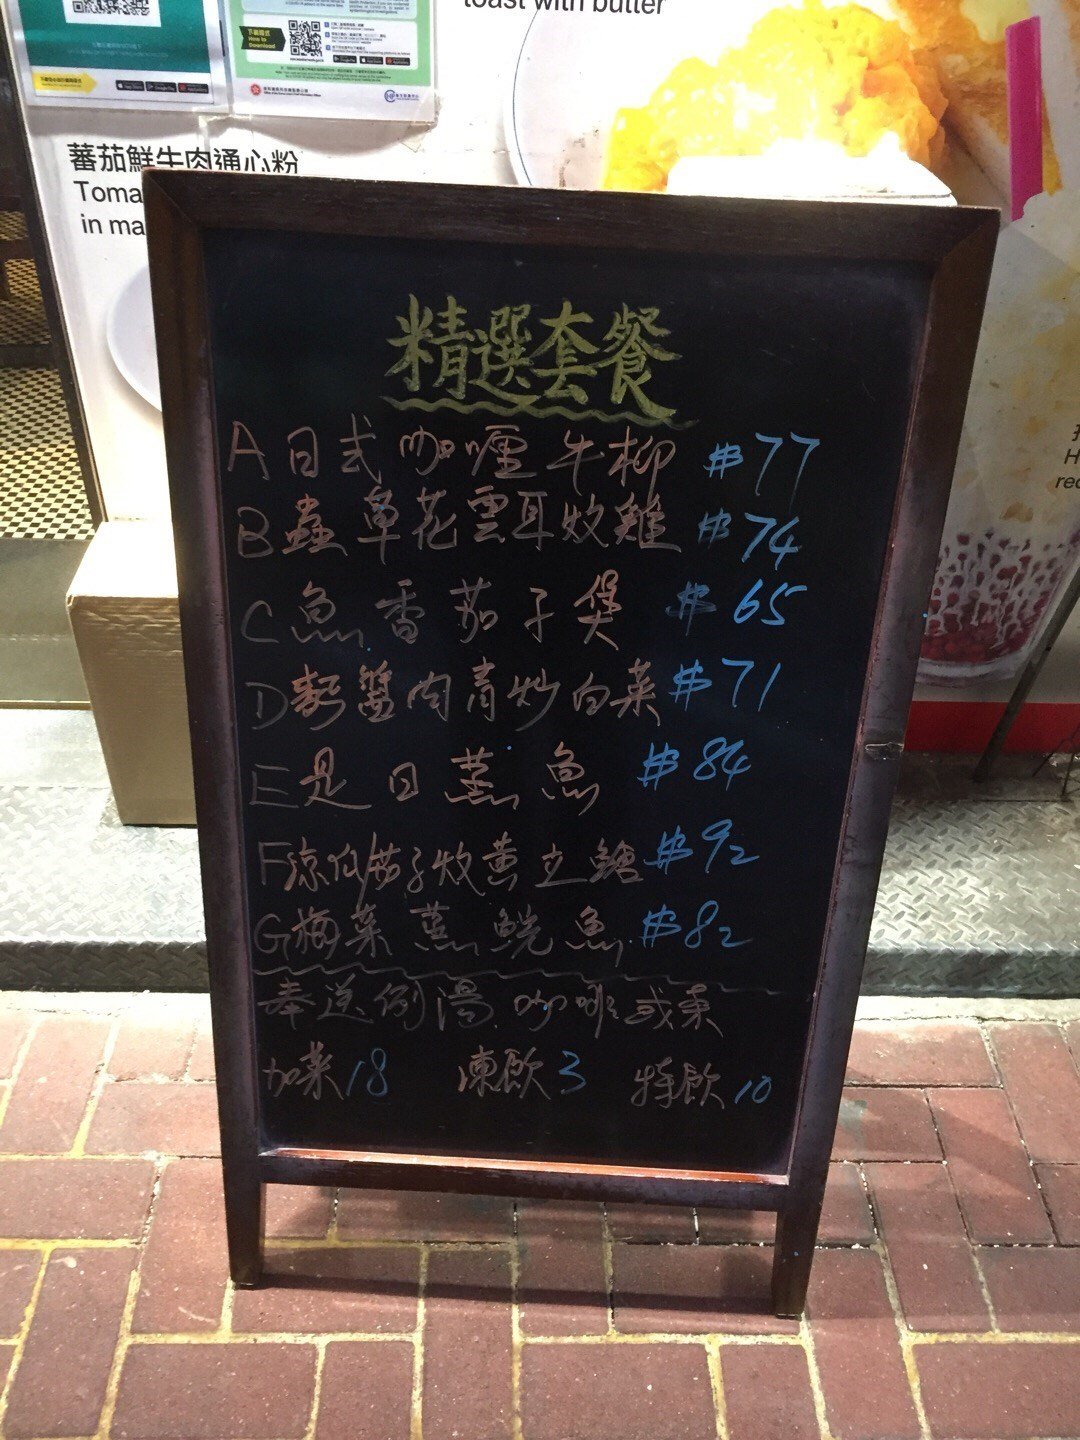 toast with butter
下載程式
How to
Download
蕃茄鮮牛肉通心粉
Toma
in ma
精選套餐
A日式咖喱牛柳 $77
B蟲草花雲耳炆雞 $74
C魚香茄子煲 $65
D 蟹肉 炒白菜 $71
E是日蒸魚 $84
F涼瓜茄子炆黃立鱠 $92
G梅菜蒸鯇魚 $82
奉送例湯.咖啡或茶
加菜18 凍飲3 特飲10